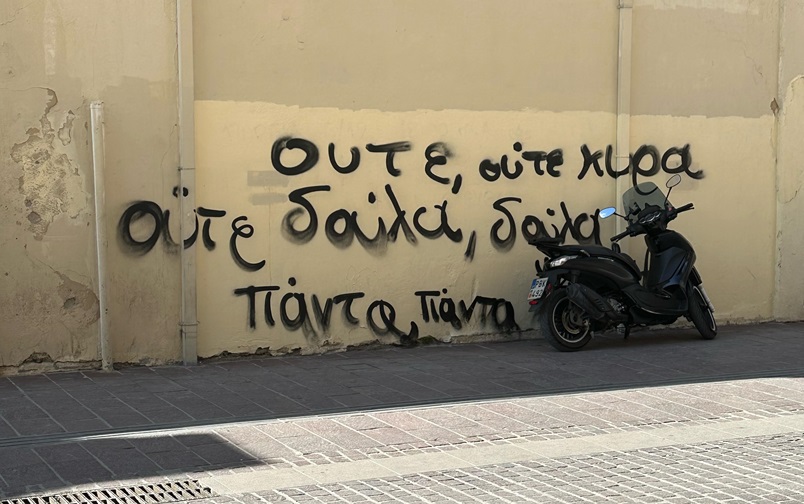 ουτε, ούτε κυρα
ούτε δαύλα, δαύλα
πάντα, πάντα